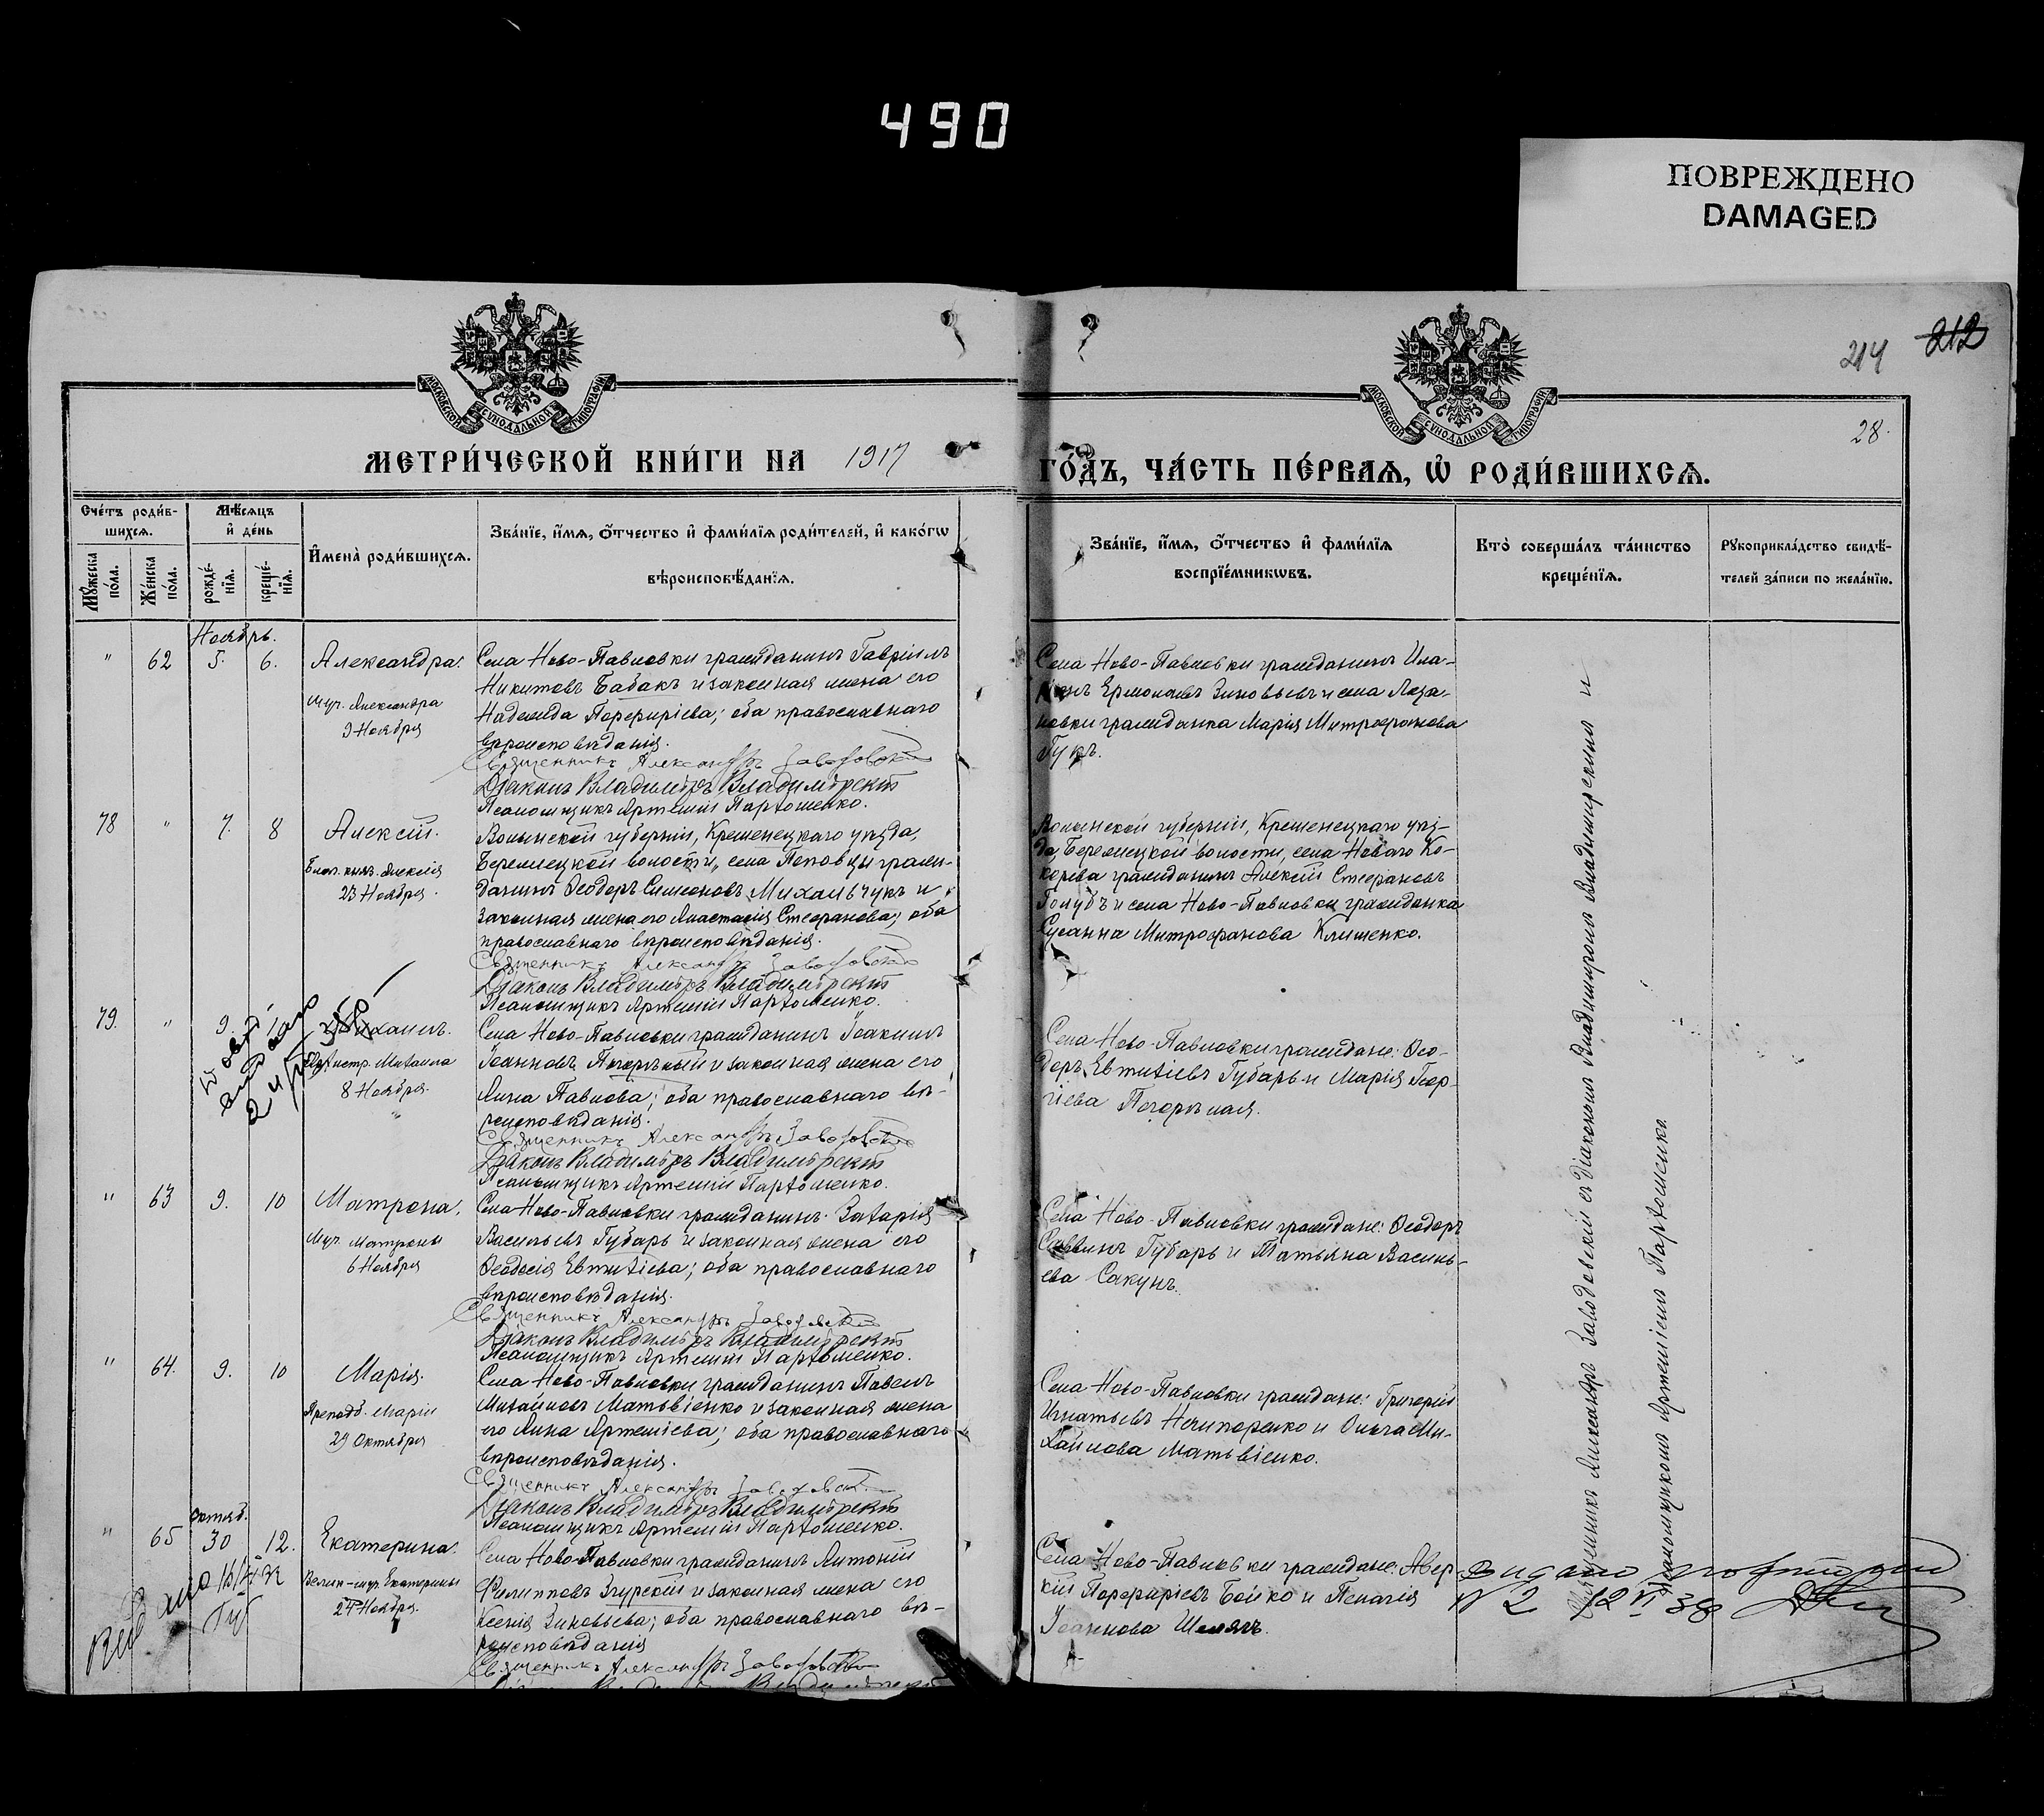 490
ПОВРЕЖДЕНО
DAMAGED
214
212
28.
МОСКОВСКОЙ СѴНОДАЛЬНОЙ ТИПОГРАФІИ
МОСКОВСКОЙ СѴНОДАЛЬНОЙ ТИПОГРАФІИ
МЕТРИ́ЧЕСКОЙ КНИ́ГИ НА 1917
ГО́ДЪ, ЧА́СТЬ ПЕ́РВАѦ, Ѡ҆ РОДИ́ВШИХСѦ.
Сче́тъ роди́в-
шихсѧ.
Мꙋ́жеска по́ла.
Же́нска по́ла.
Мѣ́сѧцъ
и҆ де́нь
рожде́-
нїѧ.
креще́-
нїѧ.
И҆мена̀ роди́вшихсѧ.
Зва́нїе, и҆́мѧ, ѻ҆́тчество и҆ фами́лїѧ роди́телей, и҆ како́гѡ
вѣроисповѣ́данїѧ.
Зва́нїе, и҆́мѧ, ѻ҆́тчество и҆ фами́лїѧ
воспрїе́мникѡвъ.
Кто̀ соверша́лъ та́инство
креще́нїѧ.
Рꙋкоприкла́дство свидѣ́-
телей за́писи по жела́нїю.
Ноябрь.
" 62 5. 6. Александра.
Муч. Александра
9 Ноября
Села Ново-Павловки гражданинъ Гавріилъ
Никитовъ Бабакъ и законная жена его
Надежда Порфиріева; оба православнаго
вѣроисповѣданія.
Священникъ Александръ Заводовскій
Діаконъ Владиміръ Владимірскій
Псаломщикъ Артемій Пархоменко.
Села Ново-Павловки гражданинъ Ила-
ріонъ Ермолаевъ Зиновьевъ и села Лоза-
новки гражданка Марія Митрофанова
Гукъ.
78 " 7. 8 Алексій.
Благ. княз. Алексія
23 Ноября.
Волынской губерніи, Кременецкаго уѣзда,
Бережецкой волости, села Поповцы граж-
данинъ Ѳеодоръ Симеоновъ Михальчукъ и
законная жена его Анастасія Стефанова; оба
православнаго вѣроисповѣданія.
Священникъ Александръ Заводовскій
Діаконъ Владиміръ Владимірскій
Псаломщикъ Артемій Пархоменко.
Волынской губерніи, Кременецкаго уѣз-
да, Бережецкой волости, села Новаго Ко-
корева гражданинъ Алексій Стефановъ
Голубъ и села Ново-Павловки гражданка
Сусанна Митрофанова Клименко.
79. " 9. Михаилъ.
Архистр. Михаила
8 Ноября.
Села Ново-Павловки гражданинъ Іоакимъ
Іоанновъ Погорѣлый и законная жена его
Анна Павлова; оба православнаго вѣ-
роисповѣданія.
Священникъ Александръ Заводовскій
Діаконъ Владиміръ Владимірскій
Псаломщикъ Артемій Пархоменко.
Села Ново-Павловки граждане: Ѳео-
доръ Евтихіевъ Губарь и Марія Геор-
гіева Погорѣлая.
" 63 9. 10 Матрона.
Муч. Матроны
6 Ноября
Села Ново-Павловки гражданинъ Захарія
Васильевъ Губарь и законная жена его
Ѳеодосія Евтихіева; оба православнаго
вѣроисповѣданія.
Священникъ Александръ Заводовскій
Діаконъ Владиміръ Владимірскій
Псаломщикъ Артемій Пархоменко.
Села Ново-Павловки граждане: Ѳеодоръ
Саввинъ Губарь и Татьяна Василь-
ева Сакунъ.
" 64. 9. 10 Марія.
Преподоб. Маріи
29 Октября
Села Ново-Павловки гражданинъ Павелъ
Михайловъ Матвіенко и законная жена
его Анна Артеміева; оба православнаго
вѣроисповѣданія.
Священникъ Александръ Заводовскій
Діаконъ Владиміръ Владимірскій
Псаломщикъ Артемій Пархоменко.
Села Ново-Павловки граждане: Григорій
Игнатьевъ Нечипоренко и Ольга Ми-
хайлова Матьвіенко.
Октяб.
" 65 30 12. Екатерина.
Велик-муч. Екатерины
24 Ноября.
Села Ново-Павловки гражданинъ Антоній
Филипповъ Згурскій и законная жена его
Ксенія Зиновьева; оба православнаго вѣ-
роисповѣданія
Священникъ Александръ Заводовскій
Села Ново-Павловки граждане: Авер-
кій Порфиріевъ Бойко и Пелагія
Іоаннова Шелягъ.
Священникъ Александръ Заводовскій съ діакономъ Владиміромъ Владимірскимъ и
псаломщикомъ Артеміемъ Пархоменко
видано повторно
№ 2 12 VI 38